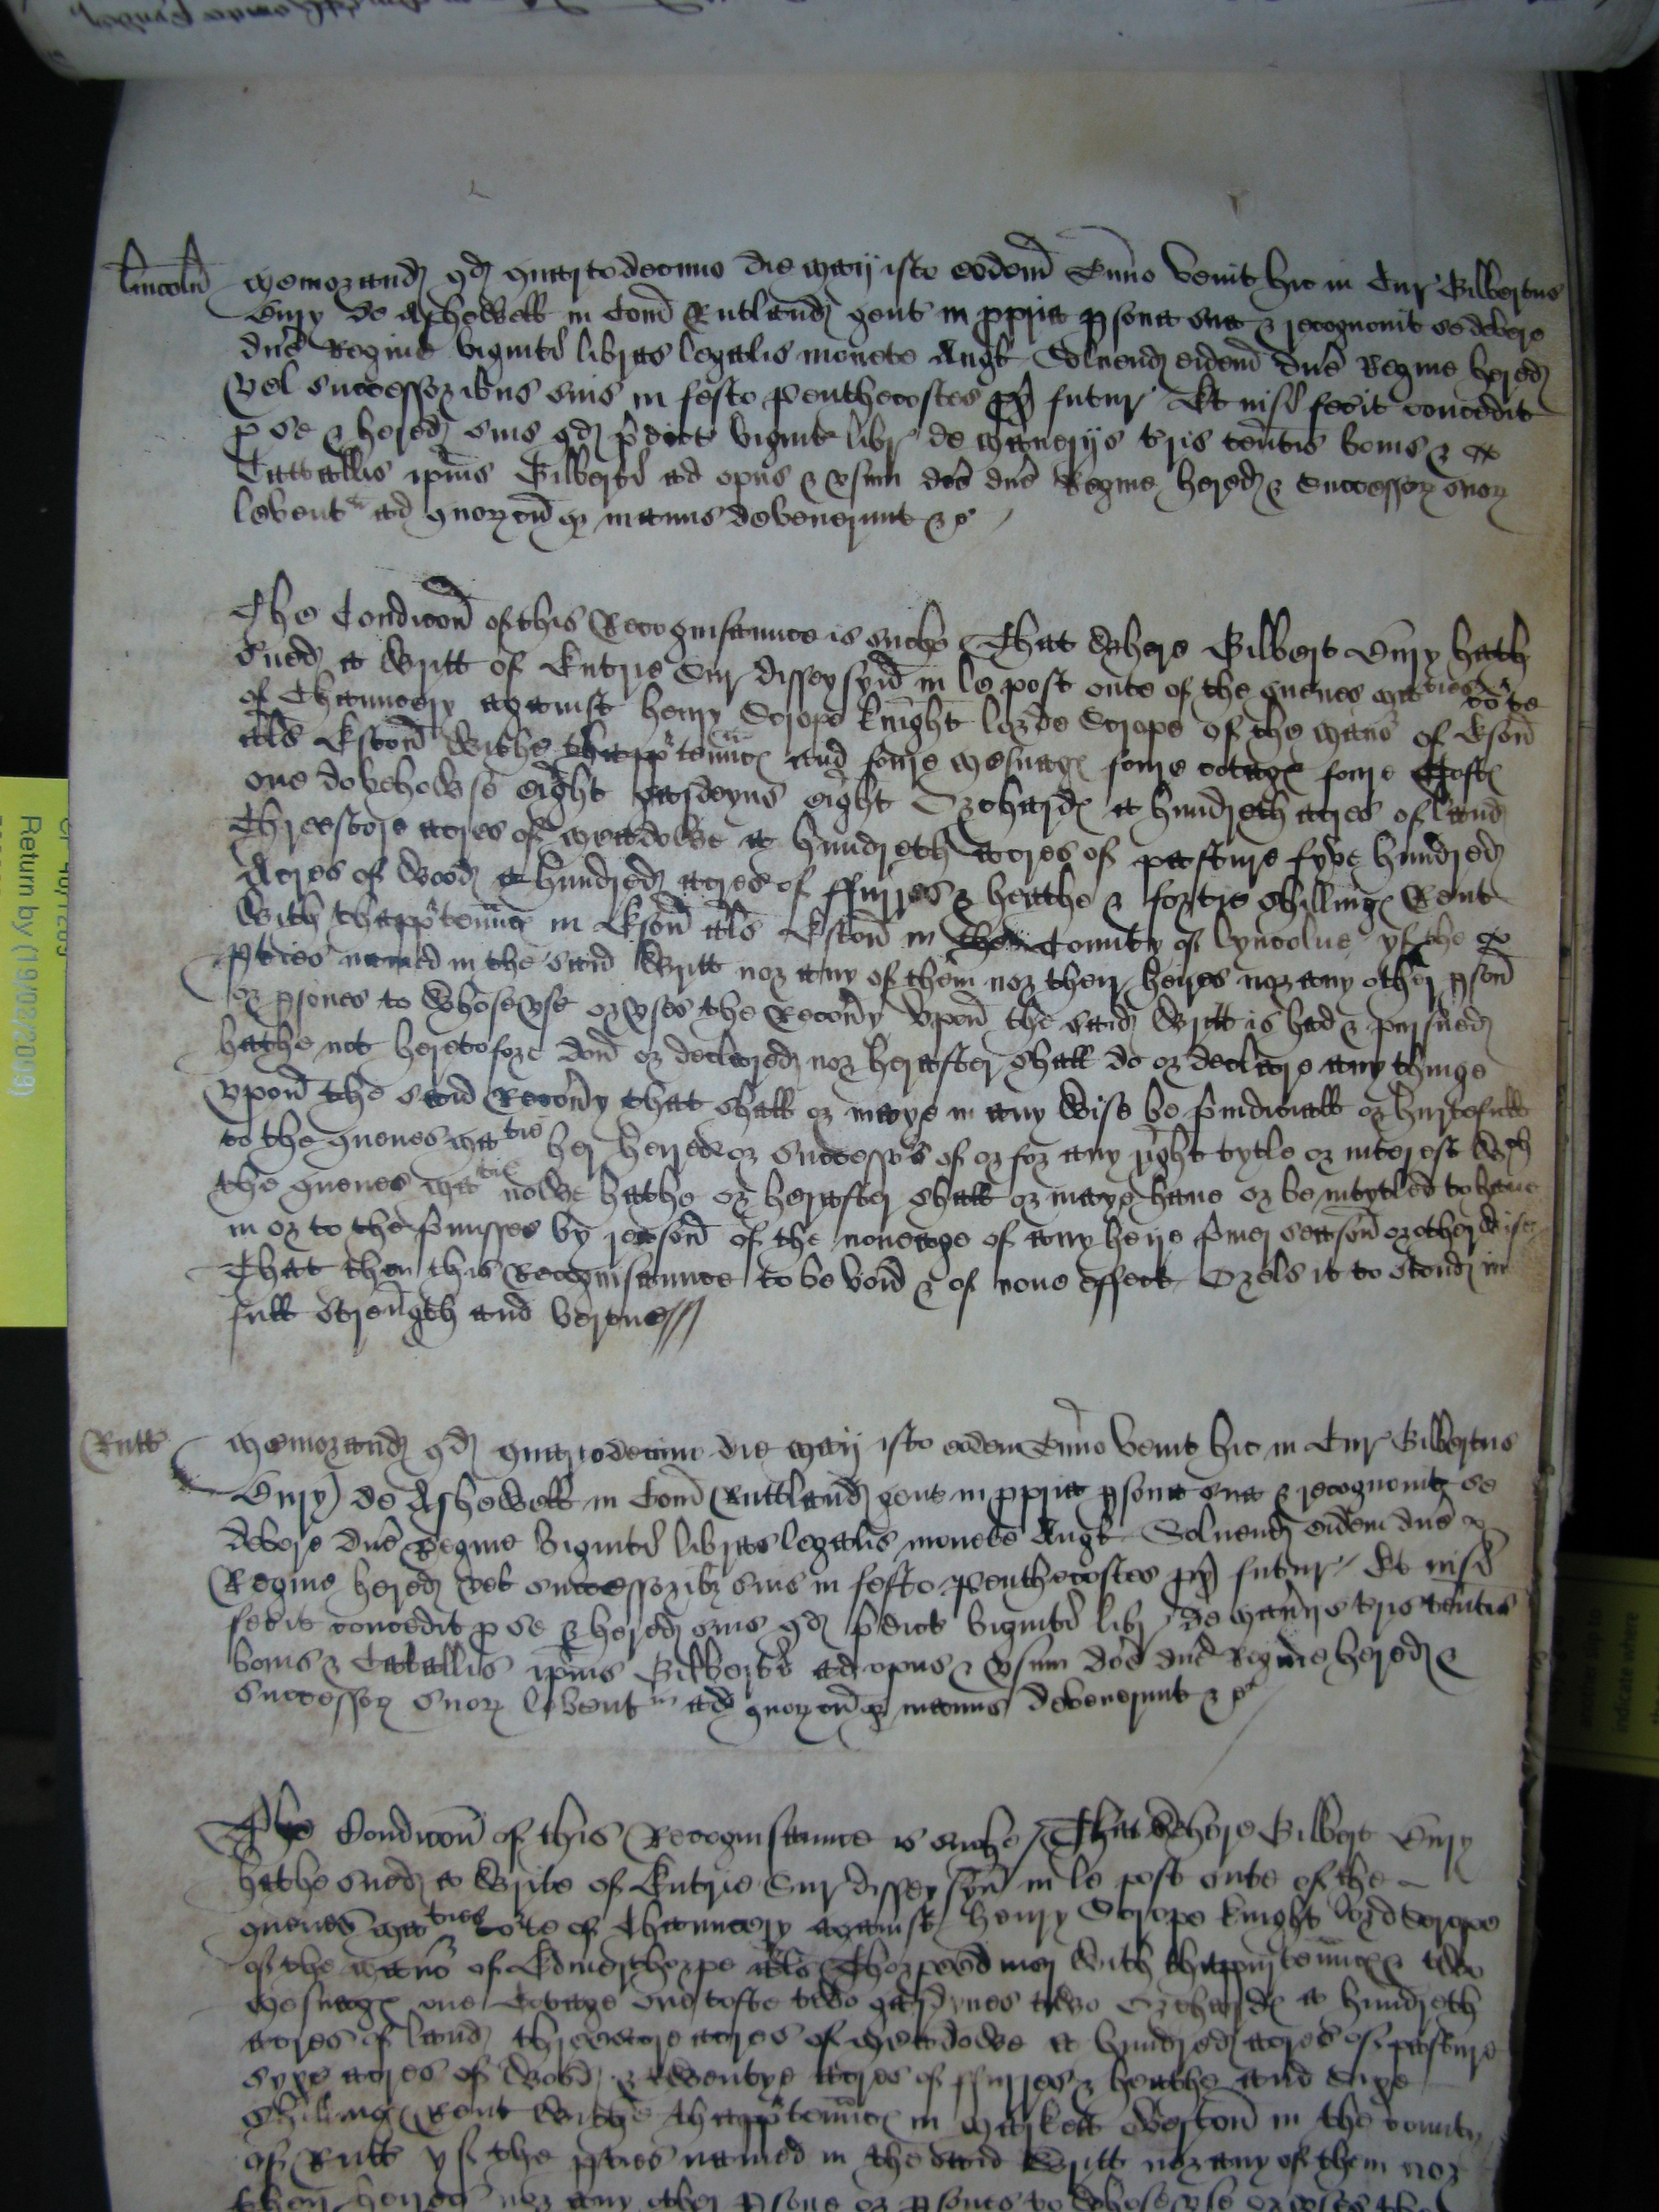 Lincoln
Memorand qd quartodecimo die Maij isto eodem Termino venit hic in Cur Gilbertus
Bury de Asshewell in Com Rutland gent in ppria psona sua & recognovit se debere
dne Regine viginti libras legalis monete Angl Solvend eidem dne Regine hered
vel successoribus suis in festo Penthecostes px futur Et nisi fecit concedit
p se & hered suis qd pdict viginti libr de manerijs terris tentis bonis &
Catallis ipius Gilberti ad opus & usum dce dne Regine hered & Successor suor
levent ad quorcumq manus devenerunt &c
The Condicon of this Recognisaunce is suche That where Gilbert Bury hath
sued a writt of Entrie Sur disseysyn in le post oute of the quenes maties corte
of Chauncery against henry Scrope knight lorde Scrope of the manor of Eson
als Eston withe thapptennces and foure mesuages foure cotages foure toftes
one dovehowse eight gardeyns eight Orchardes a hundreth acres of land
Threescore acres of meadowe a hundreth acres of pasture fyve hundred
Acres of wood a hundred acres of ffurres & heathe & fortie shillinges Rent
with thapptennces in Eson als Eston in the County of lyncolne yf the
pties named in the said writt nor any of them nor their heires nor any other pson
or psones to whose vse or vses the Recovy vpon the said writt is had & pursued
hathe not heretofore don or declared nor herafter shall do or declare any thinge
vpon the said Recovy that shall or maye in any wise be piudiciall or hurtefull
to the quenes matie her heires or Successors of or for any right tytle or interest wch
the quenes matie nowe hathe or herafter shall or maye have or be intytled to have
in or to the pmisses by reason of the noneage of any heire pmer season or otherwise
That then this Recognisaunce to be void & of none effect Orels it to stond in
full strength and vertue
Rutl
Memorand qd quartodecimo die Maij isto eodem Termino venit hic in Cur Gilbertus
Bury de Asshewell in Com Ruttland gent in ppria psona sua & recognovit se
debere dne Regine viginti libras legalis monete Angl Solvend eidem dne
Regine hered vel successorib suis in festo Penthecostes px futur Et nisi
fecit concedit p se & hered suis qd pdict viginti libr de manijs tris tentis
bonis & Catallis ipius Gilberti ad opus & usum dce dne Regine hered &
Successor suor levent ad quorcumq manus devenerunt &c
The Condicon of this Recognisaunce is suche That where Gilbert Bury
hathe sued a write of Entrie Sur disseysyn in le post oute of the
quenes maties corte of Chauncery against henry Scrope knight lord Scrope
of the manor of Edmerthorpe als with thappurtennces & two
mesuages one Cotage one tofte two gardynes two Orchardes a hundreth
acres of land threscore acres of meadowe a hundred acres of pasture
syxe acres of wood & twentye acres of ffurres & heathe and
Shillinges Rent withe thapptennces in Markett Overton in the county
of Rutl yf the pties named in the said writt nor any of them nor
their heires nor any other psone or psones to whose vse or vses the
Return by (19/02/2009)
indicate where